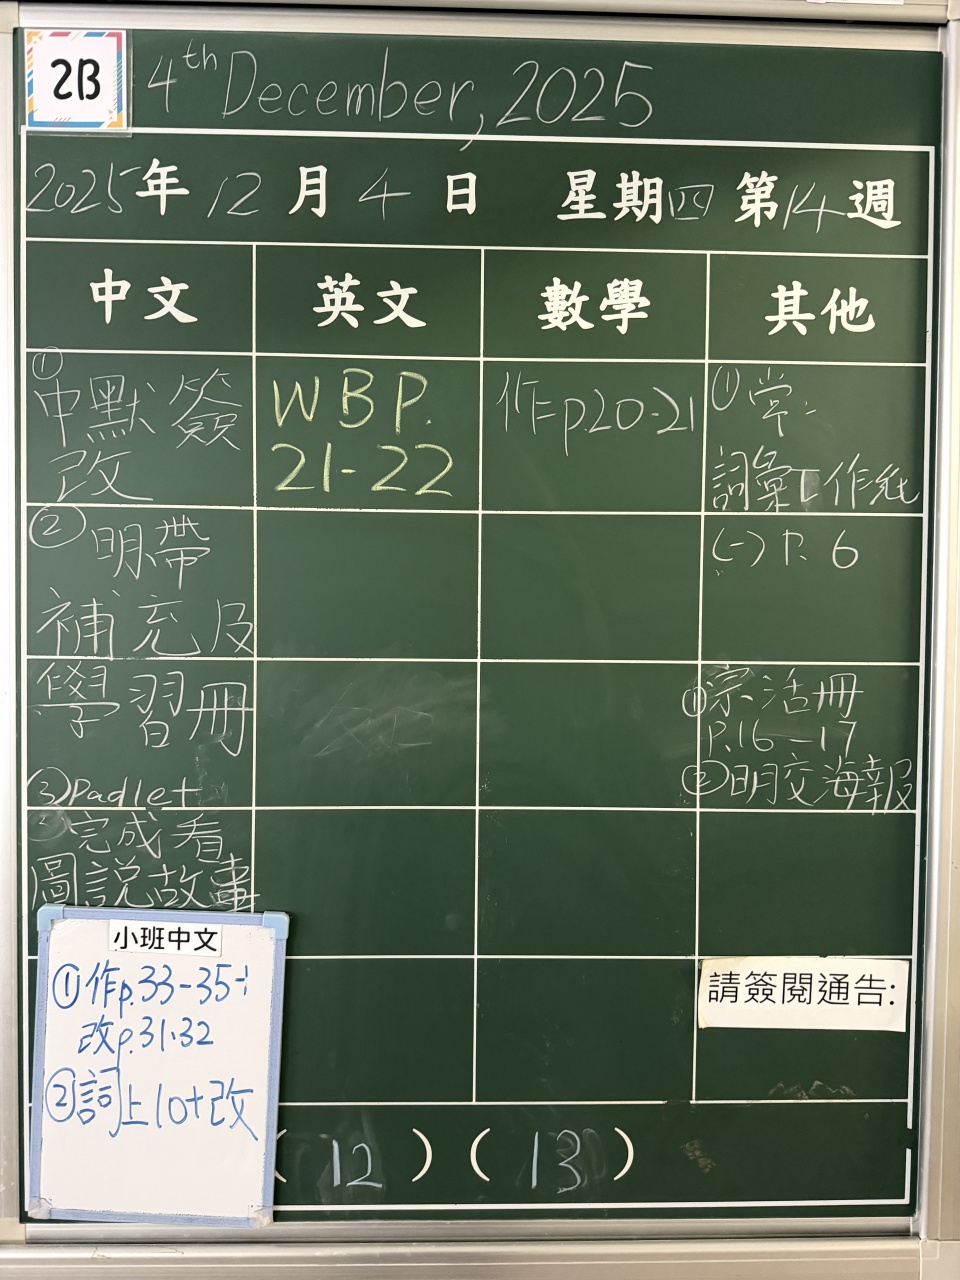 2B
4th December, 2025
2025年12月4日 星期四 第14週
中文
英文
數學
其他
①中默簽
改
②明帶
補充及
學習冊
③Padlet
完成看
圖說故事
WB P.
21-22
作p.20-21
①常:
詞彙工作紙
(一) P. 6
①宗活冊
P.16-17
②明交海報
小班中文
①作p.33-35+
改p.31,32
②詞上10+改
請簽閱通告:
(12) (13)